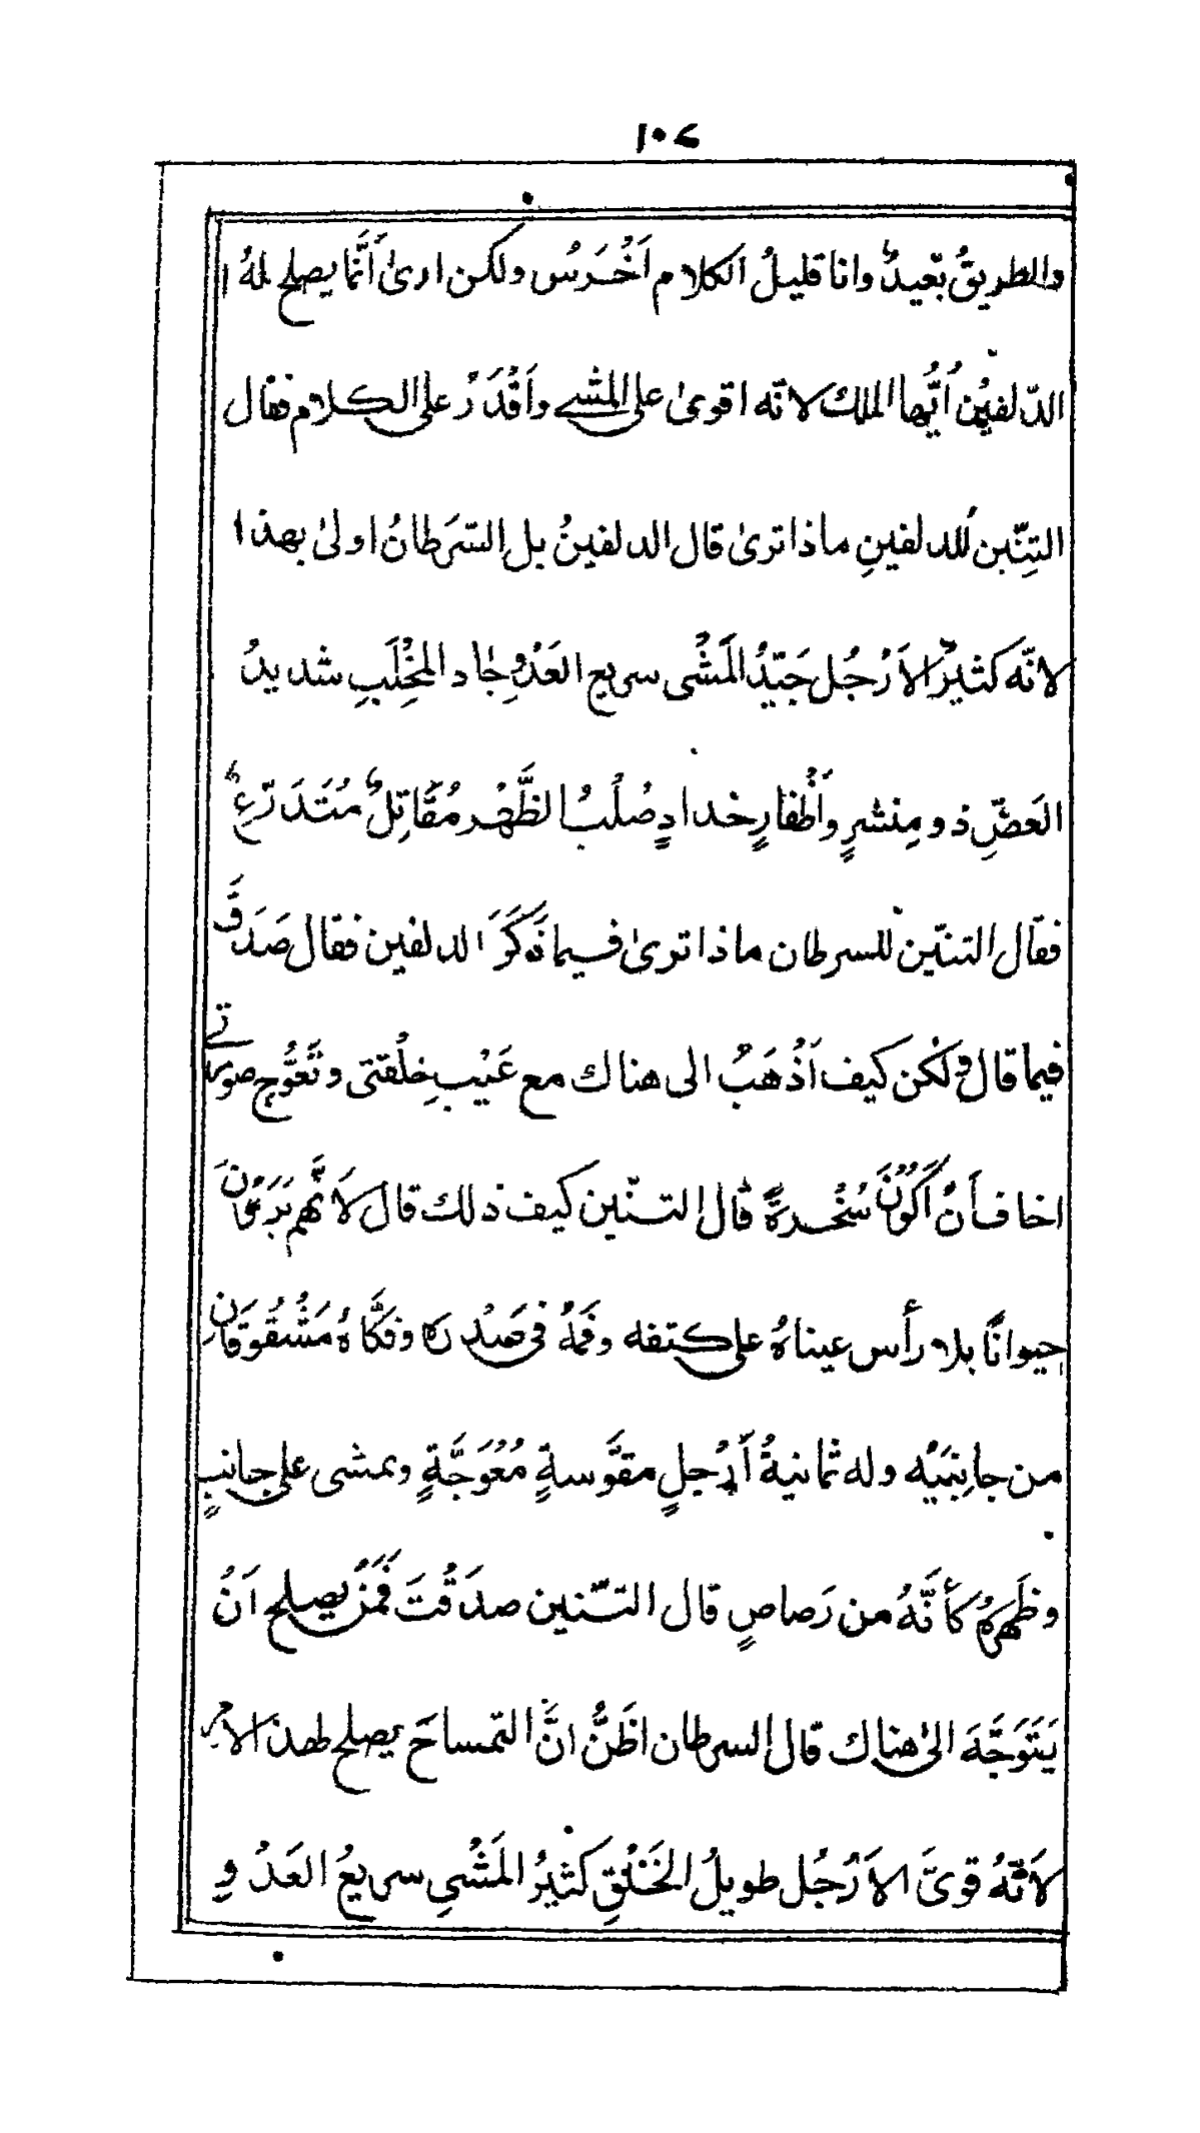 ١٠٤
والطريقُ بَعيدٌ وانا قليلُ الكلام اَخْرَسُ ولكن ارىٰ أَنَّما يصلح لهُ ا
الدّلفِيْن اَيُّها الملك لانّه اقوىٰ على المشے واَقْدَرُ على الكلام فقال
التِنّين للدلفينِ ماذا ترىٰ قال الدلفينُ بل السَّرَطانُ اولىٰ بهذا
لانّه كثيرُ الاَرْجُل جَيّدُ المَشْى سريع العَدْوِ حٰاد المِخْلَبِ شديدُ
العَضِّ ذو مِنشرٍ واَظْفارٍ حدادٍ صُلبُ الظَّهْر مُقَاتِلٌ مُتَدَرّعٌ
فقال التنّين للسرطان ماذا ترىٰ فيما ذَكَرَ الدلفين فقال صَدَقَ
فيما قال ولٰكن كيف اَذْهَبُ الى هناك مع عَيْبِ خِلْقتى وتَعَوُّج صورتے
اخاف أَنْ أَكُوْنَ سُخْرةً قال التنّين كيف ذلك قال لاَنَّهم يَرَوْنَ
حيوانًا بلا رأس عيناهُ على كتفه وفَمُهُ فى صَدْره وفَكَّاهُ مَشْقُوقَانِ
من جانِبَيْه وله ثمانيةُ أَرْجلٍ مقَوَّسةٍ مُعْوَجَّةٍ ويمشى على جانبٍ
وظَهرهُ كأَنَّهُ من رَصاصٍ قال التنّين صدَقْتَ فَمَنْ يصلح اَنْ
يَتَوَجَّهَ الىٰ هناك قال السرطان اظَنُّ انَّ التمساحَ يصلح لهذا الامر
لاَنَّهُ قوىَّ الاَرْجُل طويلُ الخَلْقِ كثيرُ المَشْىِ سريعُ العَدْوِ